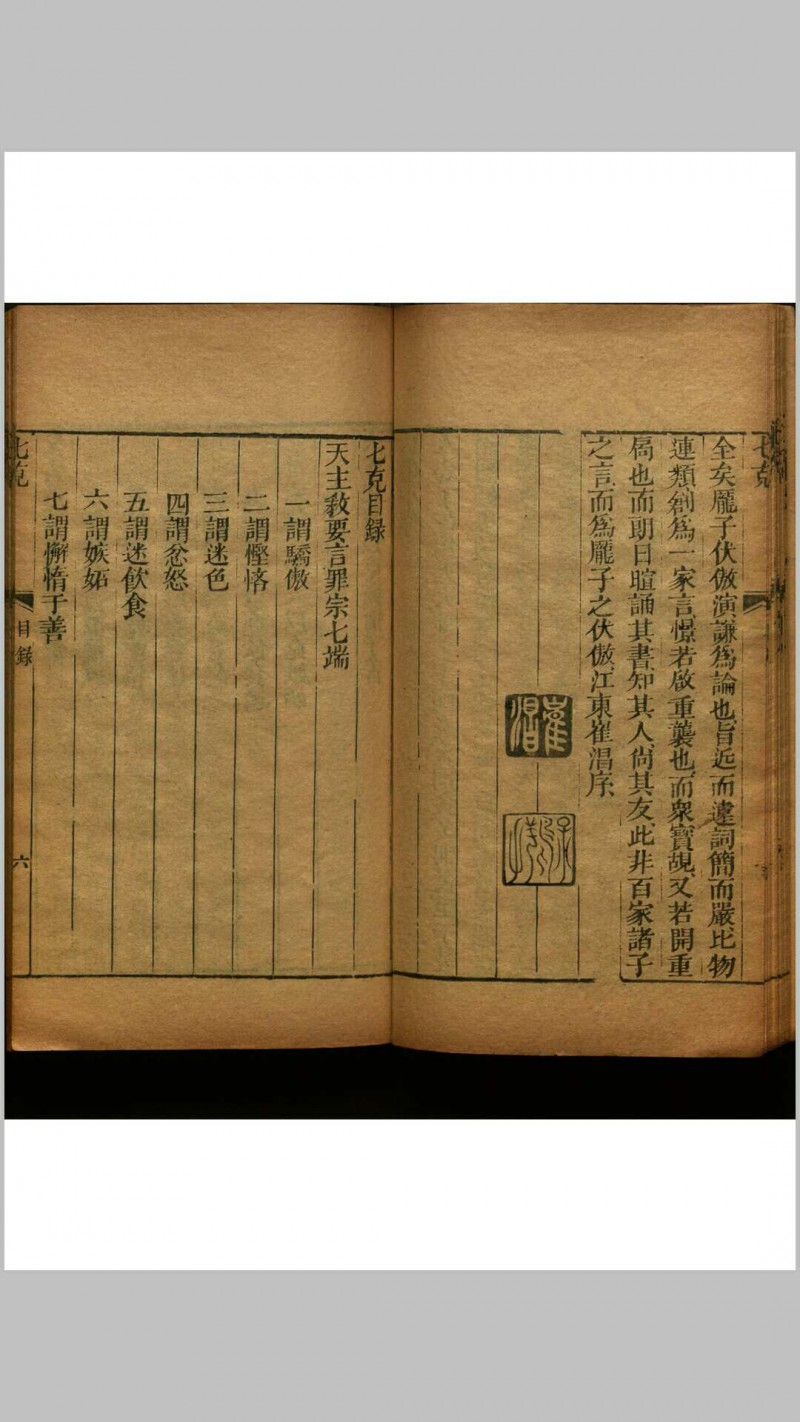 七克
全矣龐子伏傲演謙爲論也旨近而遠詞簡而嚴比物
連類創爲一家言憬若啟重蘘也而衆寶覩又若開重
扃也而朗日暄誦其書知其人尚其友此非百家諸子
之言而爲龐子之伏傲江東崔淐序
崔淐
七克目録
天主敎要言罪宗七端
一謂驕傲
二謂慳悋
三謂迷色
四謂忿怒
五謂迷飲食
六謂嫉妬
七謂懈惰于善
七克
目録
六